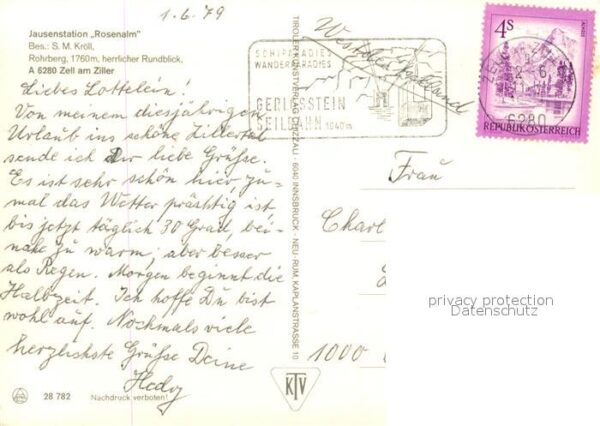 1.6.79
Jausenstation „Rosenalm"
Bes.: S. M. Kröll,
Rohrberg, 1760m, herrlicher Rundblick,
A 6280 Zell am Ziller
Liebes Lottelein!
Von meinem diesjährigen
Urlaub ins schöne Zillertal
sende ich Dir liebe Grüße.
Es ist sehr schön hier, zu-
mal das Wetter prächtig ist
bis jetzt täglich 30 Grad, bei-
nahe zu warm, aber besser
als Regen. Morgen beginnt die
Halbzeit. Ich hoffe Du bist
wohl auf. Nochmals viele
herzlichste Grüße Deine
Hedy
28 782 Nachdruck verboten!
TIROLER KUNSTVERLAG CHIZZALI · 6040 INNSBRUCK - NEU-RUM KAPLANSTRASSE 10
KTV
SCHIPARADIES
WANDERPARADIES
GERLOSSTEIN
SEILBAHN 1640m
Westdeutschland
4 S
REPUBLIK ÖSTERREICH
6280
Frau
Charl
1000
privacy protection
Datenschutz